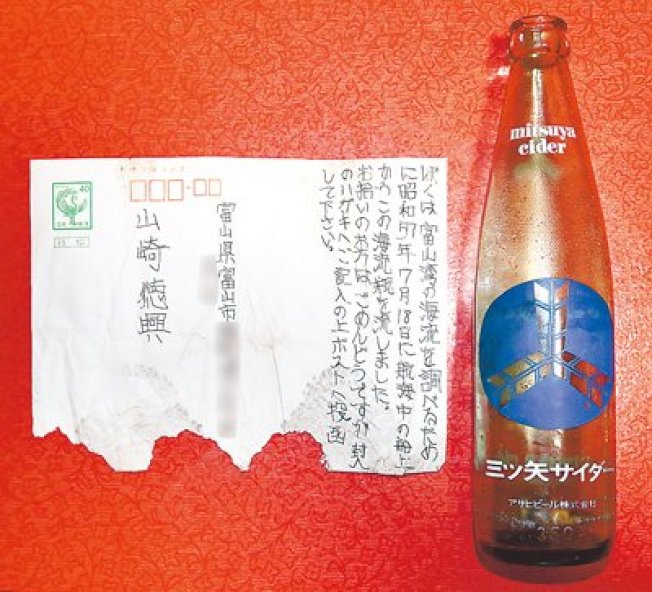 ぼくは富山湾の海流を調べるため
に昭和57年7月18日に航海中の船上
からこの海流瓶を流しました。
お拾いの方はごめんどうですが封入
のハガキへご記入の上ポストへ投函
して下さい。
富山県富山市
山崎徳興
40
mitsuya
cider
三ツ矢サイダー
アサヒビール株式会社